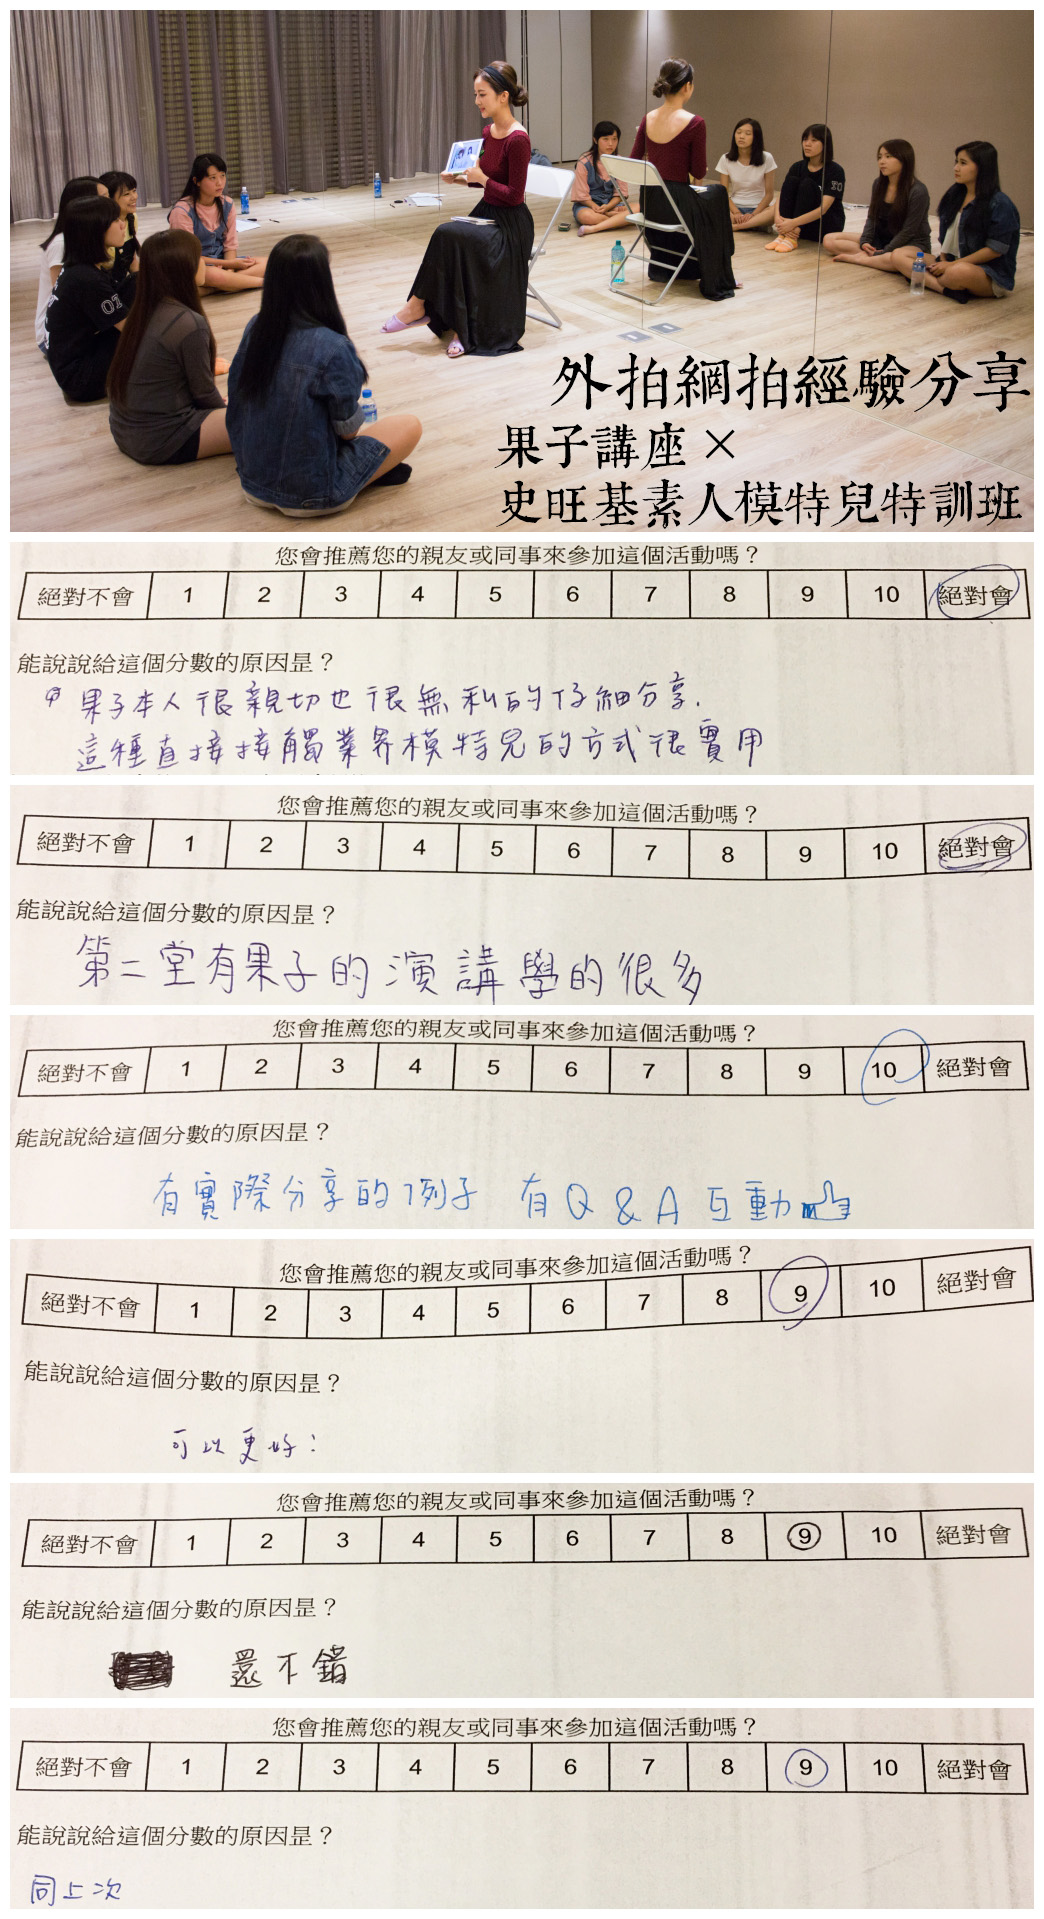 外拍網拍經驗分享
果子講座×
史旺基素人模特兒特訓班
您會推薦您的親友或同事來參加這個活動嗎？
絕對不會 1 2 3 4 5 6 7 8 9 10 絕對會
能說說給這個分數的原因是？
果子本人很親切也很無私的仔細分享.
這種直接接觸業界模特兒的方式很實用
您會推薦您的親友或同事來參加這個活動嗎？
絕對不會 1 2 3 4 5 6 7 8 9 10 絕對會
能說說給這個分數的原因是？
第二堂有果子的演講學的很多
您會推薦您的親友或同事來參加這個活動嗎？
絕對不會 1 2 3 4 5 6 7 8 9 10 絕對會
能說說給這個分數的原因是？
有實際分享的例子 有Q&A互動
您會推薦您的親友或同事來參加這個活動嗎？
絕對不會 1 2 3 4 5 6 7 8 9 10 絕對會
能說說給這個分數的原因是？
可以更好!
您會推薦您的親友或同事來參加這個活動嗎？
絕對不會 1 2 3 4 5 6 7 8 9 10 絕對會
能說說給這個分數的原因是？
還不錯
您會推薦您的親友或同事來參加這個活動嗎？
絕對不會 1 2 3 4 5 6 7 8 9 10 絕對會
能說說給這個分數的原因是？
同上次